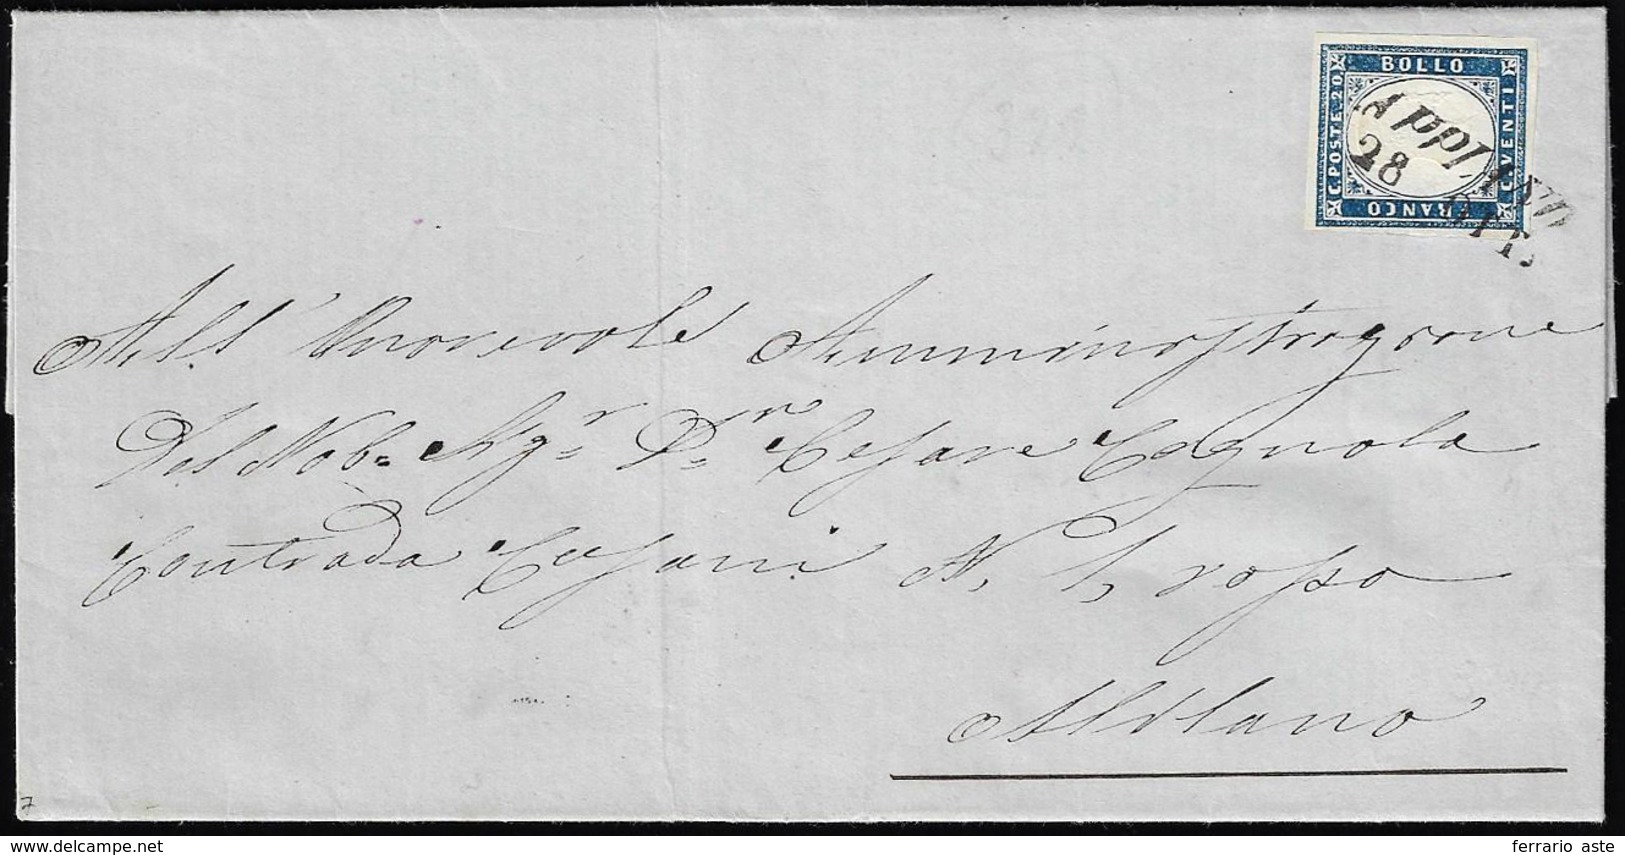 BOLLO
C. POSTE. 20.
C. VENTI
FRANCO
Appi
28 OTT.
All' Onorevole Amministrazione
Del Nob.e Sig.r D.r Cesare Cagnola
Contrada Cusani N. rosso
Milano
7
delcampe.net
ferrario aste